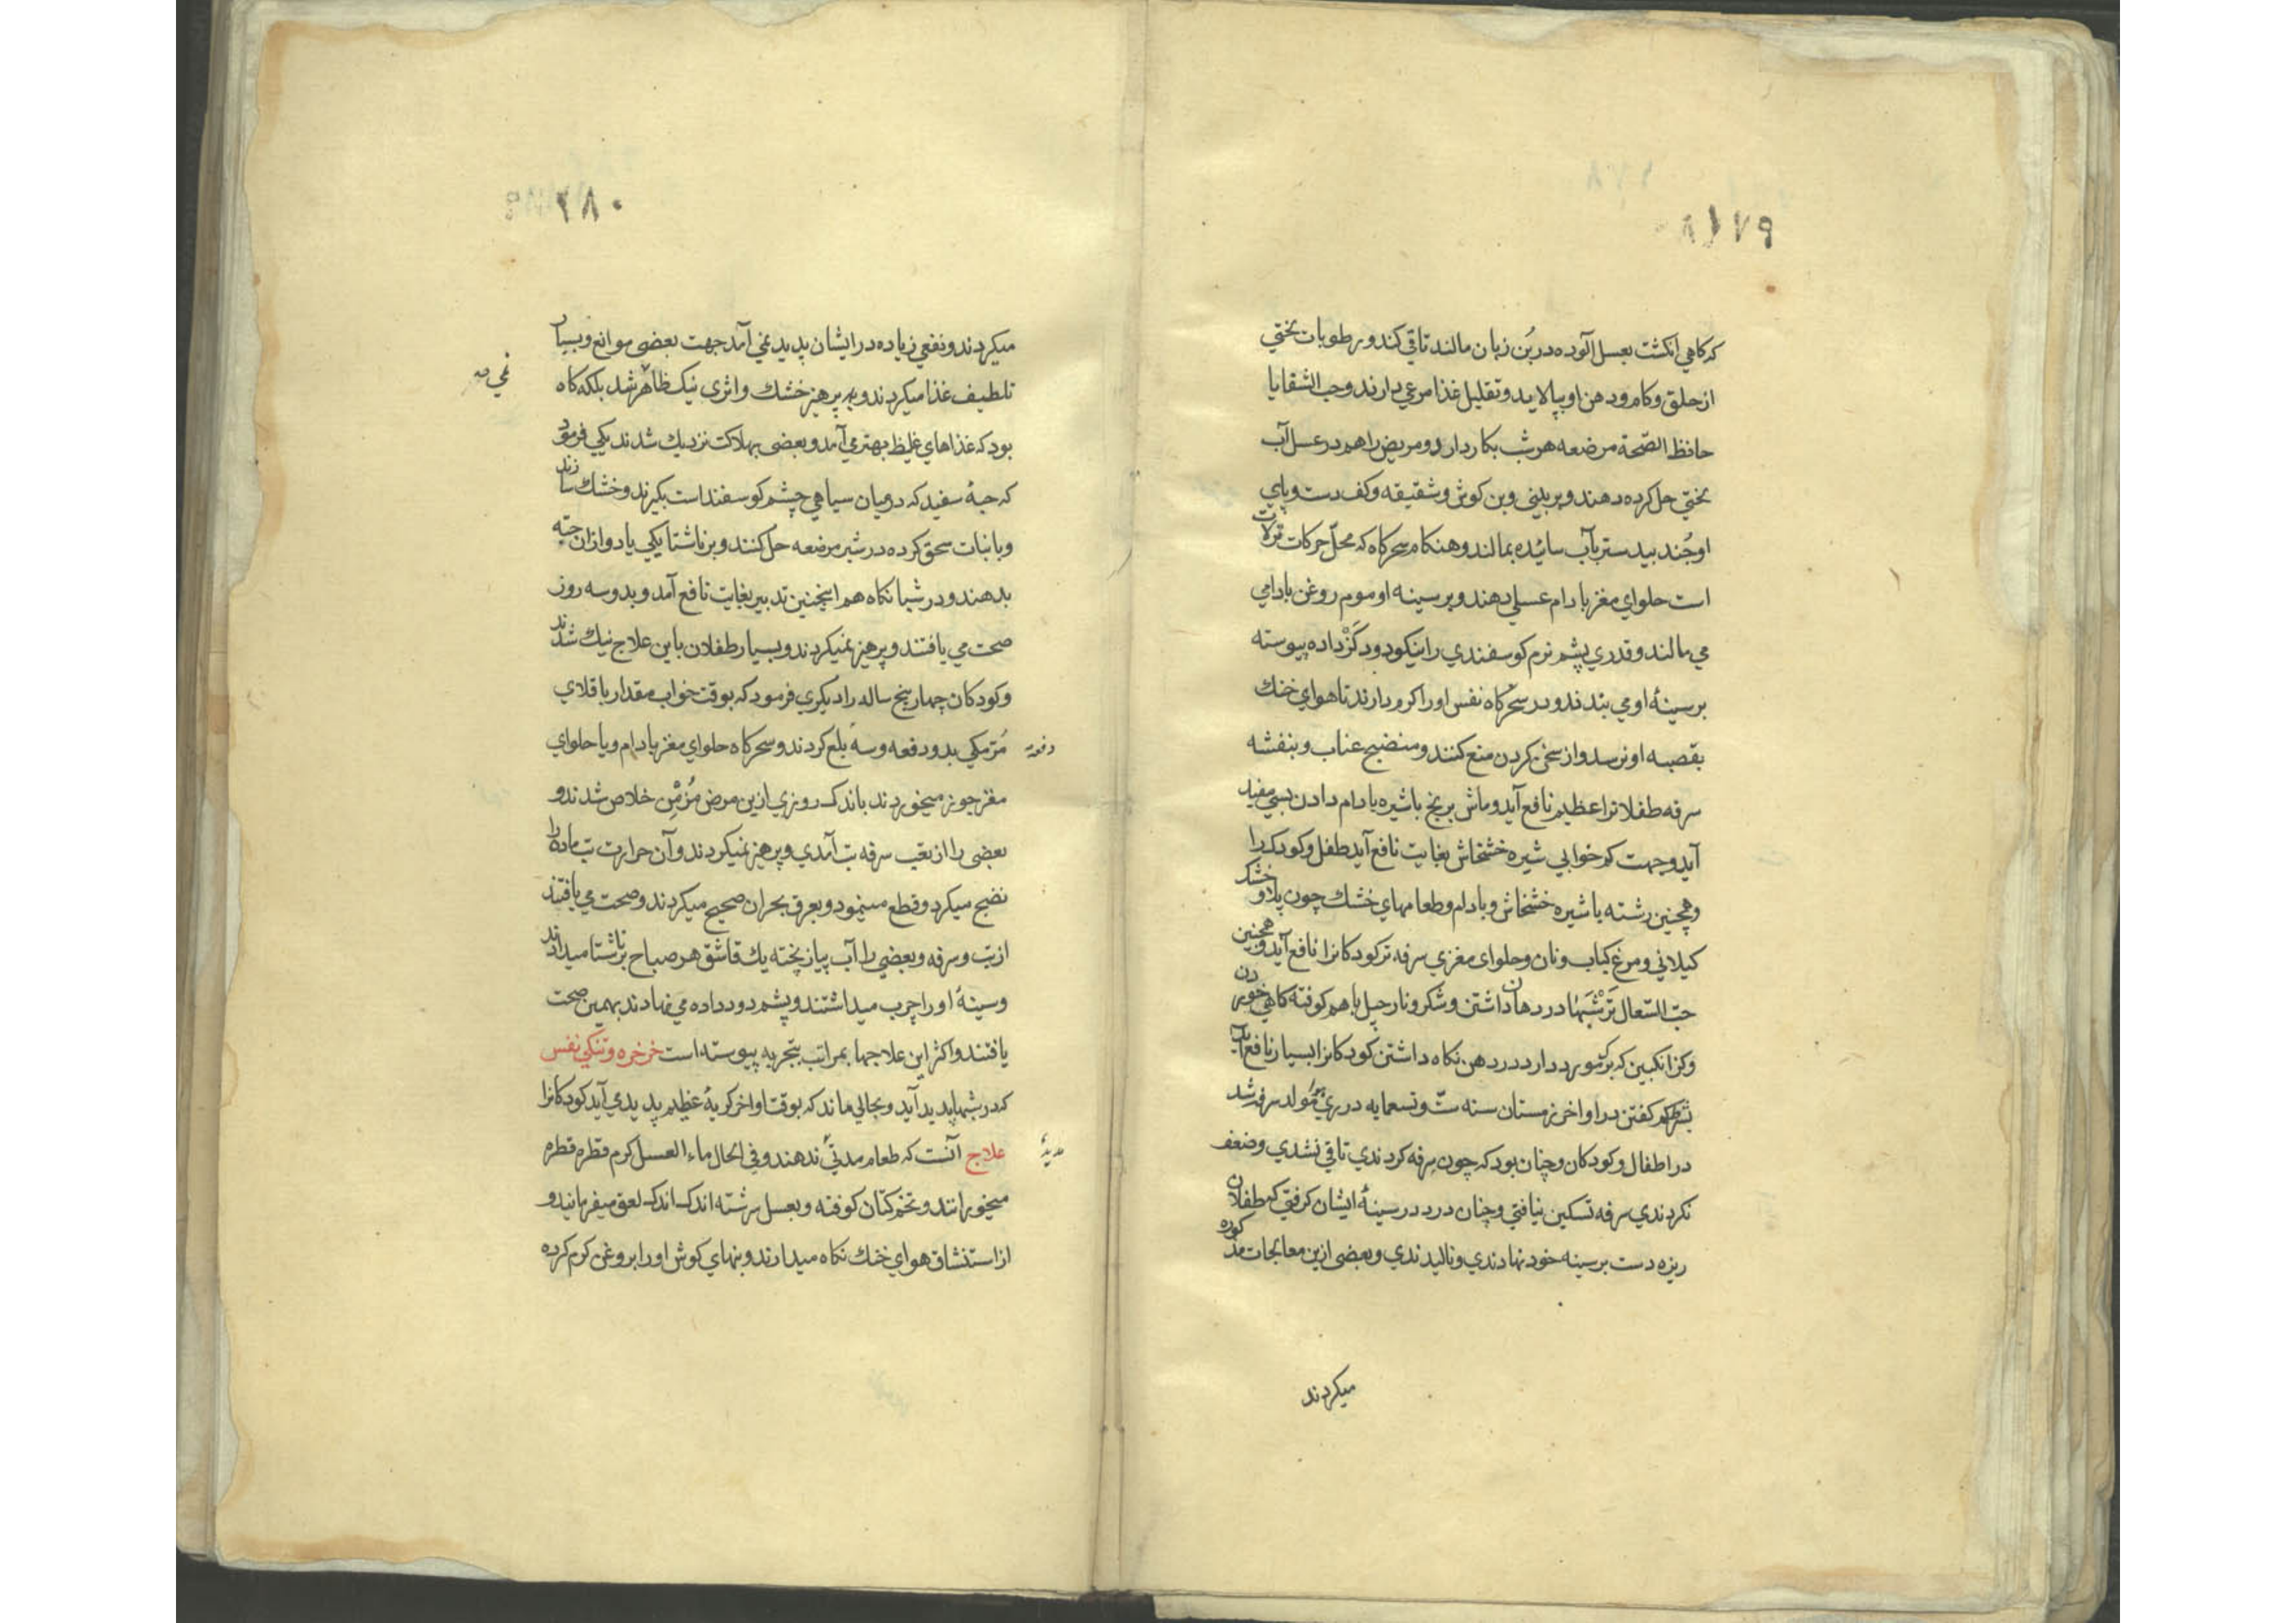 ۱۷۹
که کاهی انکشت بعسل آلوده در بُن زبان مالند تا قی کند و رطوبات بختی
از حلق و کام و دهن او بپالاید و تقلیل غذا مرعی دارند و حب الشقایا
حافظ الصّحة مرضعه هر شب بکار دارد و مریض را هم در عسل آب
بختی حل کرده دهند و بر بینی و بن کوش و شقیقه و کف دست و پای
او جُند بیدستر بآب سائیده بمالند و هنکام سحرکاه که محلّ حرکات نزلات
است حلوای مغز بادام عسلی دهند و بر سینه او موم روغن بادامی
می مالند و قدری پشم نرم کوسفندی را نیکو دود کَزْ داده پیوسته
بر سینهٔ او می بندند و در سحرکاه نفس او را کرم دارند تا هوای خنك
بقصبه او نرسد و از سخن کردن منع کنند و منضج عناب و بنفشه
سرفه طفلانرا عظیم نافع آید و ماش برنج با شیره بادام دادن بسی مفید
آید و جهت کم خوابی شیره خشخاش بغایت نافع آید طفل و کودك را
و همچنین رشته با شیره خشخاش و بادام و طعامهای خشك چون پلاو خشك
کیلانی و مرغ کباب و نان و حلوای مغزی سرفه تر کودکانرا نافع آید و همچنین
حبّ السّعال تَرْ شبَها در دهان داشتن و شکر و نارجیل با هم کوفته کاهی خوردن
و کزانکبین که بر مورد دارد در دهن نکاه داشتن کودکانرا بسیار نافع آید
بشرط کم کفتن در اواخر زمستان سنه ستّ و تسعمایه در ری مولد سرفه شد
در اطفال و کودکان و چنان بود که چون سرفه کردندی تا قی نشدی و ضعف
نکردندی سرفه تسکین نیافتی و چنان درد در سینهٔ ایشان کرفتی که طفلان
ریزه دست بر سینه خود نهادندی و نالیدندی و بعضی ازین معالجات مذکوره
میکردند
۲۸۰
میکردند و نفعی زیاده در ایشان پدید نمی آمد جهت بعضی موانع و بسیار
تلطیف غذا میکردند و به پرهیز خشك و اثری نیك ظاهر شد بلکه کاه
نمی
بود که غذاهای غلیظ بهتر می آمد و بعضی بهلاکت نزدیك شدند یکی فرمود
که حبهٔ سفید که در میان سیاهی چشم کوسفند است بکیرند و خشك سازند
و با نبات سحق کرده در شیر مرضعه حل کنند و بر ناشتا یکی یا دو از ان حبّه
بدهند و در شبانکاه هم اینچنین تدبیر بغایت نافع آمد و بدو سه روز
صحت می یافتند و پرهیز نمیکردند و بسیار طفلان باین علاج نیك شدند
و کودکان چهار پنج ساله را دیکری فرمود که بوقت خواب مقدار باقلای
مُرّ مکی بدو دفعه و سه بلع کردند و سحرکاه حلوای مغز بادام و یا حلوای
دفعه
مغز جوز میخوردند باندك روزی ازین مرض مُزْمِن خلاص شدند و
بعضی را از تعب سرفه تب آمدی و پرهیز نمیکردند و آن حرارت تب ماده را
نضج میکرد و قطع مینمود و بعرق بحران صحیح میکردند و صحت می یافتند
از تب و سرفه و بعضی را آب پیاز پخته یك قاشق هر صباح بر ناشتا میدادند
و سینهٔ او را چرب میداشتند و پشم دود داده می نهادند بهمین صحت
یافتند و اکثر این علاجها بمراتب بتجربه پیوسته است خرخره و تنکی نفس
که در شبها پدید آید و بحالی ماند که بوقت اواخر کریهٔ عظیم پدید می آید کودکانرا
علاج آنست که طعام مدتی ندهند و فی الحال ماء العسل کرم قطره قطره
میخورانند و تخم کتان کوفته و بعسل سرشته اندك اندك لعق میفرمایند و
از استنشاق هوای خنك نکاه میدارند و بنهای کوش او را بروغن کرم کرده